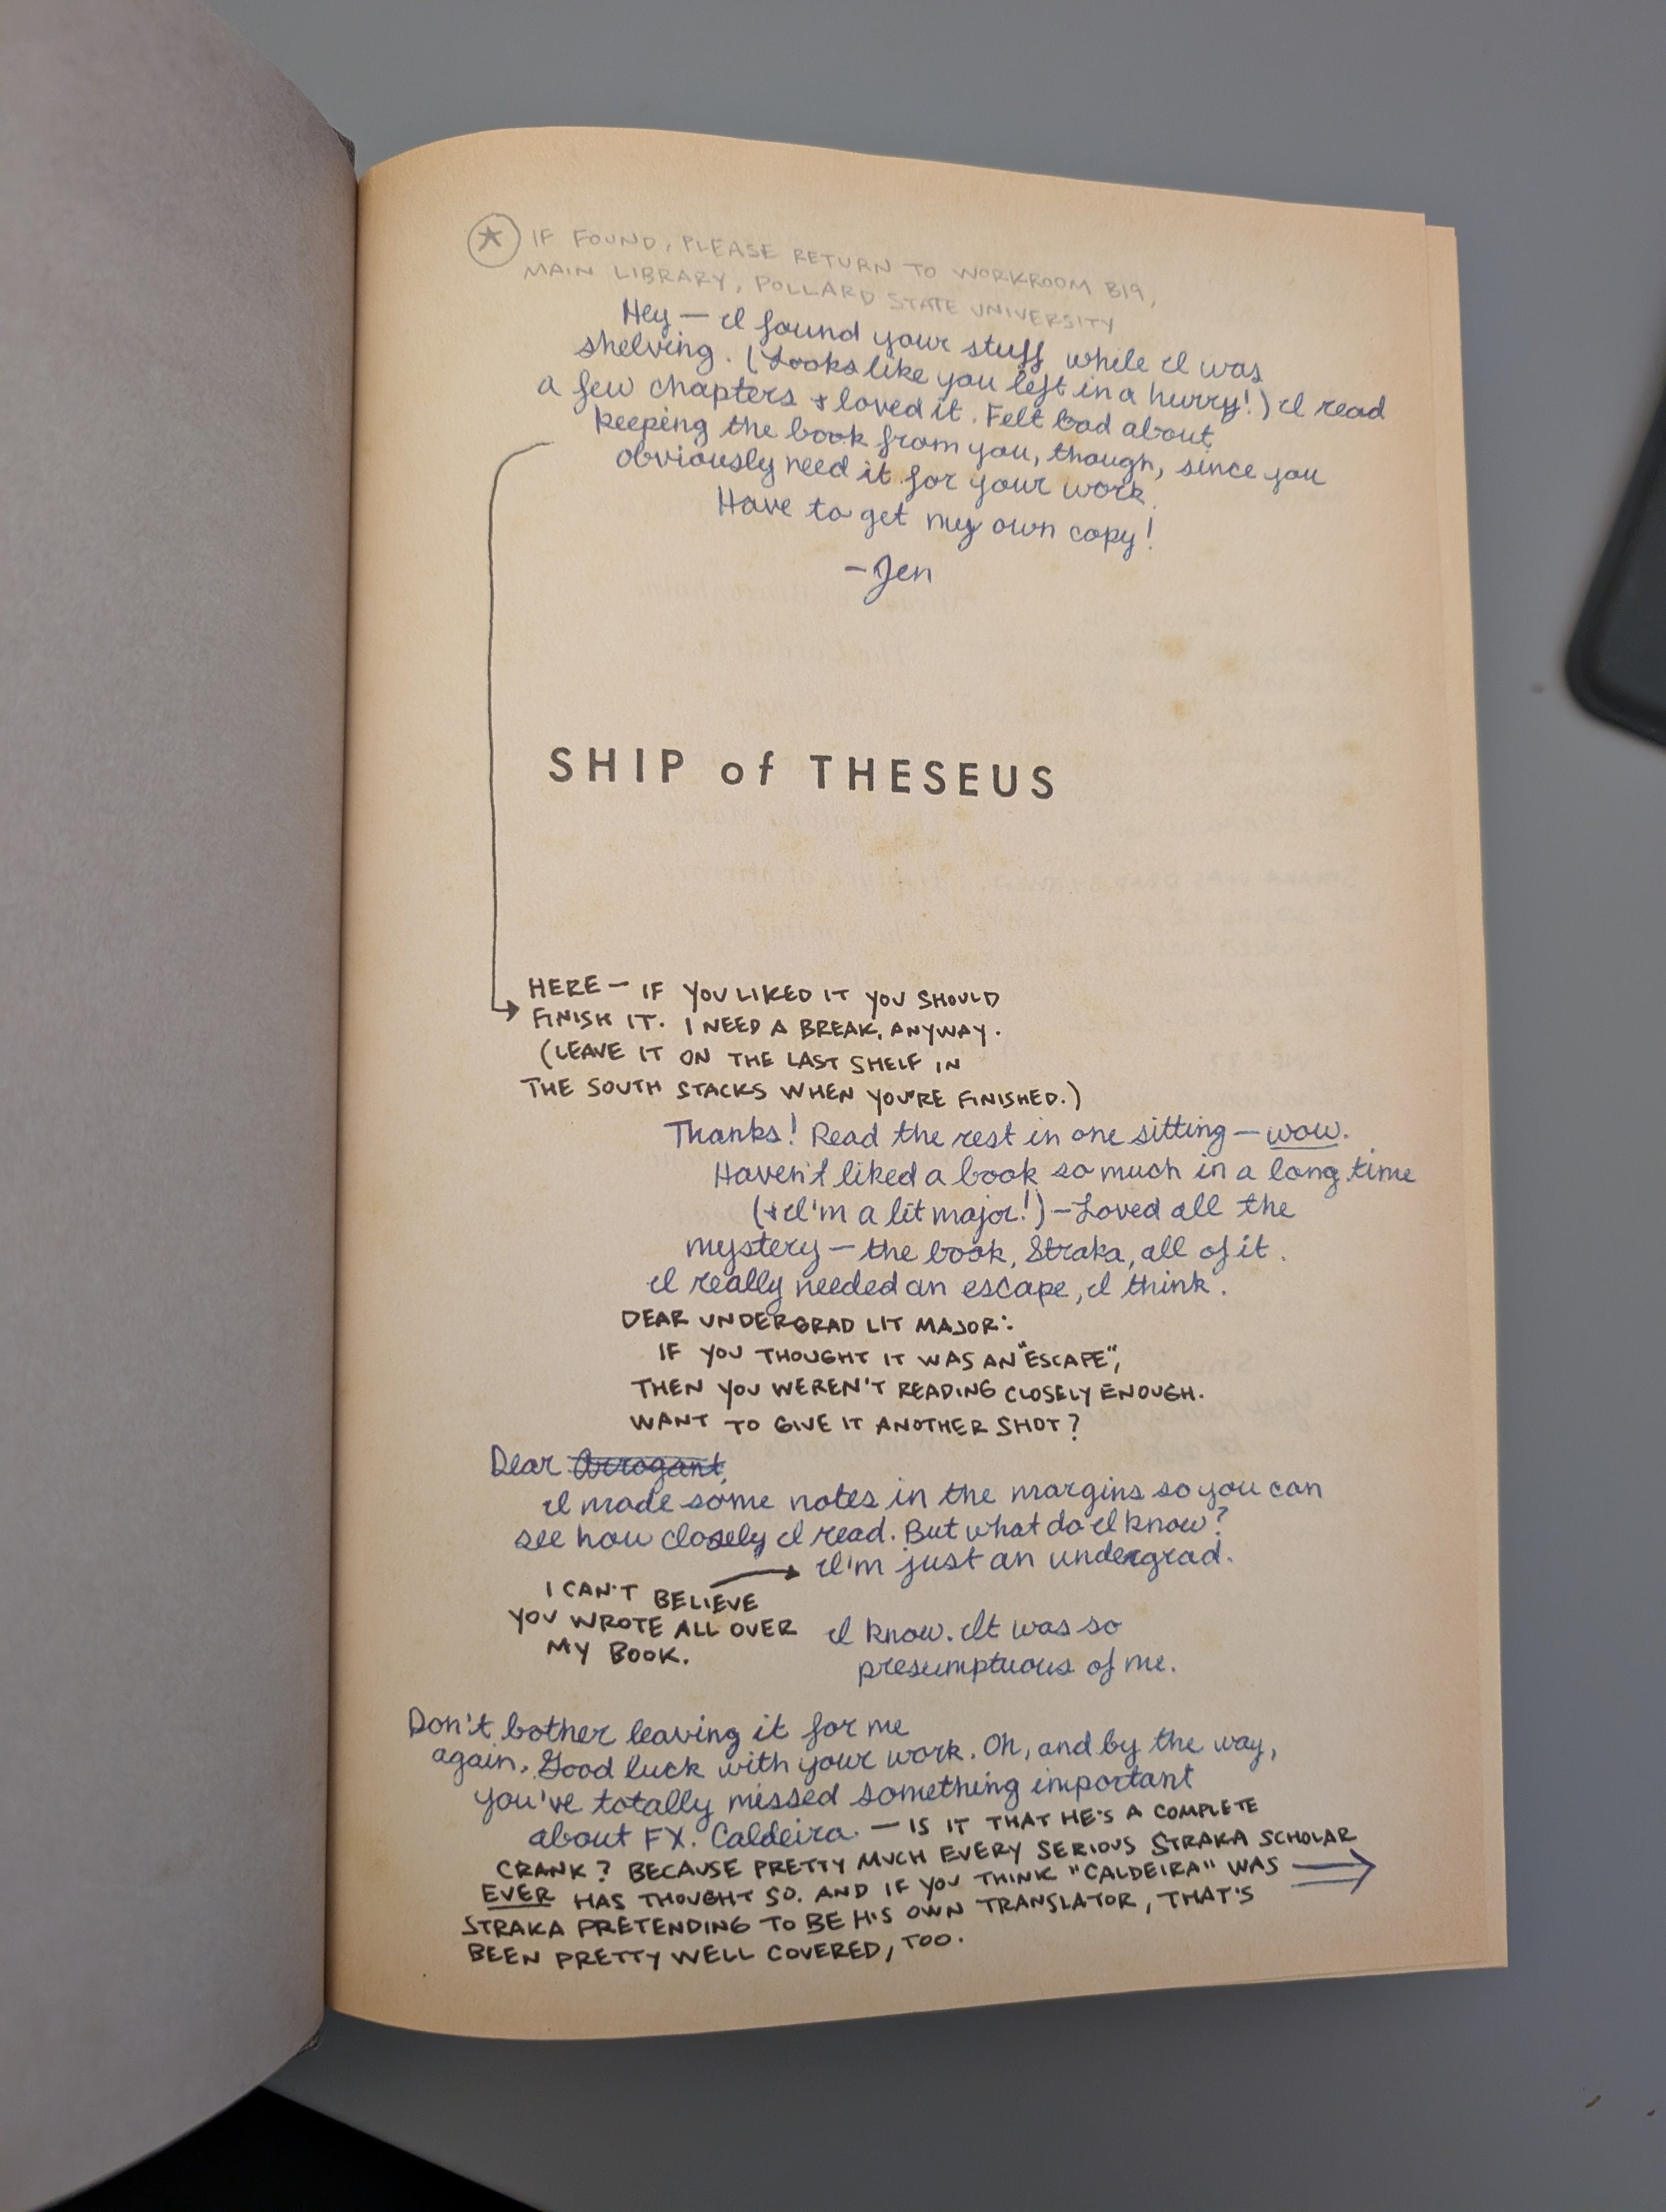 IF FOUND, PLEASE RETURN TO WORKROOM B19,
MAIN LIBRARY, POLLARD STATE UNIVERSITY
Hey — I found your stuff while I was
shelving. (Looks like you left in a hurry!) I read
a few chapters + loved it. Felt bad about
keeping the book from you, though, since you
obviously need it for your work.
Have to get my own copy!
—Jen
SHIP of THESEUS
HERE — IF YOU LIKED IT YOU SHOULD
FINISH IT. I NEED A BREAK, ANYWAY.
(LEAVE IT ON THE LAST SHELF IN
THE SOUTH STACKS WHEN YOU'RE FINISHED.)
Thanks! Read the rest in one sitting — wow.
Haven't liked a book so much in a long time
(+ I'm a lit major!) — Loved all the
mystery — the book, Straka, all of it.
I really needed an escape, I think.
DEAR UNDERGRAD LIT MAJOR:
IF YOU THOUGHT IT WAS AN "ESCAPE",
THEN YOU WEREN'T READING CLOSELY ENOUGH.
WANT TO GIVE IT ANOTHER SHOT?
Dear Arrogant,
I made some notes in the margins so you can
see how closely I read. But what do I know?
I'm just an undergrad.
I CAN'T BELIEVE
YOU WROTE ALL OVER
MY BOOK.
I know. It was so
presumptuous of me.
Don't bother leaving it for me
again. Good luck with your work. Oh, and by the way,
you've totally missed something important
about FX. Caldeira. — IS IT THAT HE'S A COMPLETE
CRANK? BECAUSE PRETTY MUCH EVERY SERIOUS STRAKA SCHOLAR
EVER HAS THOUGHT SO. AND IF YOU THINK "CALDEIRA" WAS
STRAKA PRETENDING TO BE HIS OWN TRANSLATOR, THAT'S
BEEN PRETTY WELL COVERED, TOO.